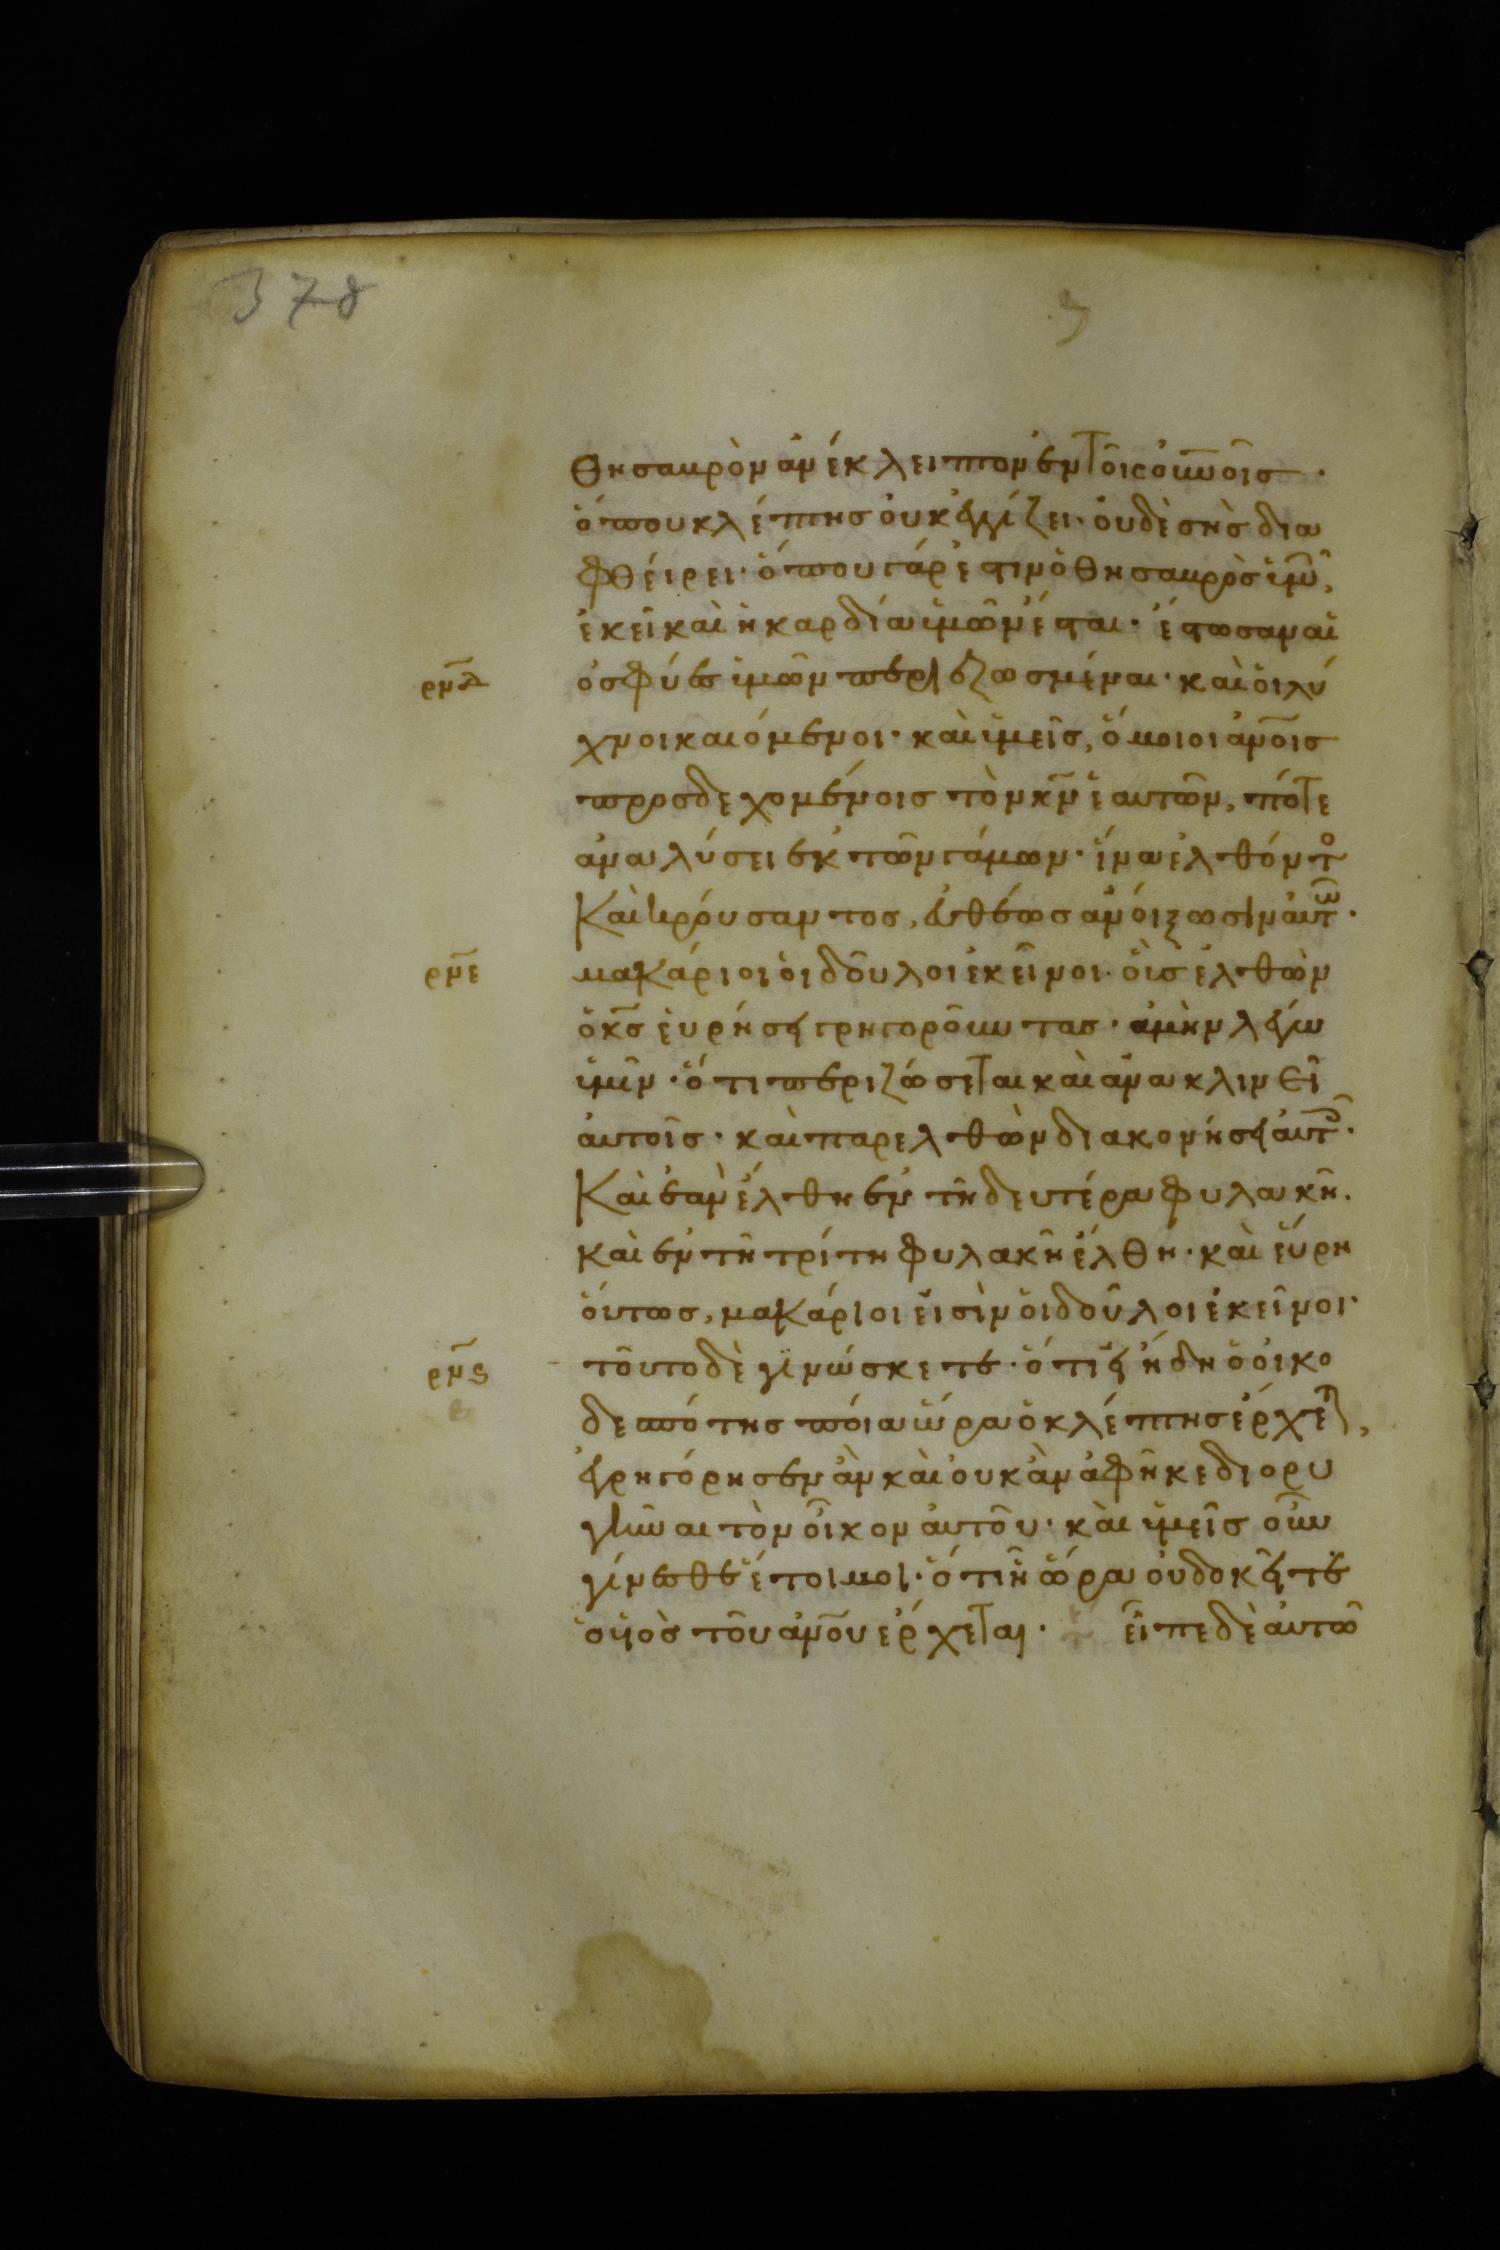 378
θησαυρὸν ἀνέκλειπτον ἐν τοῖς οὐνοῖς·
ὅπου κλέπτης οὐκ ἐγγίζει· οὐδὲ σὴς δια
φθείρει· ὅπου γάρ ἐστιν ὁ θησαυρὸς ὑμῶν,
ἐκεῖ καὶ ἡ καρδία ὑμῶν ἔσται· ἔστωσαν αἱ
ρμδ ὀσφύες ὑμῶν περιεζωσμέναι· καὶ οἱ λύ
χνοι καιόμενοι· καὶ ὑμεῖς, ὅμοιοι ἀνοις
προσδεχομένοις τὸν κν ἑαυτῶν, πότε
ἀναλύσει ἐκ τῶν γάμων· ἵνα ἐλθόντο
Καὶ κρούσαντος, εὐθέως ἀνοίξωσιν αὐτῶ·
ρμε μακάριοι οἱ δοῦλοι ἐκεῖνοι· οὓς ἐλθὼν
ὁ κς εὑρήσει γρηγοροῦντας· ἀμὴν λέγω
ὑμῖν· ὅτι περιζώσεται καὶ ἀνακλινεῖ
αὐτοῖς· καὶ παρελθὼν διακονήσει αὐτοῖς·
Καὶ ἐὰν ἔλθη ἐν τῆ δευτέρα φυλακῆ.
καὶ ἐν τῆ τρίτη φυλακῆ ἔλθη· καὶ εὕρη
οὕτως, μακάριοι εἰσὶν οἱ δοῦλοι ἐκεῖνοι·
ρμς τοῦτο δὲ γινώσκετε· ὅτι εἰ ἤδη ὁ οἰκο
δεσπότης ποία ὥρα ὁ κλέπτης ἔρχεται,
ἐγρηγόρησεν ἂν καὶ οὐκ ἂν ἀφῆκε διορυ
γῆναι τὸν οἶκον αὐτοῦ· καὶ ὑμεῖς οὖν
γίνεσθε ἕτοιμοι· ὅτι ἧ ὥρα οὐ δοκεῖτε
ὁ υἱὸς τοῦ ἀνου ἔρχεται· εἶπε δὲ αὐτῶ